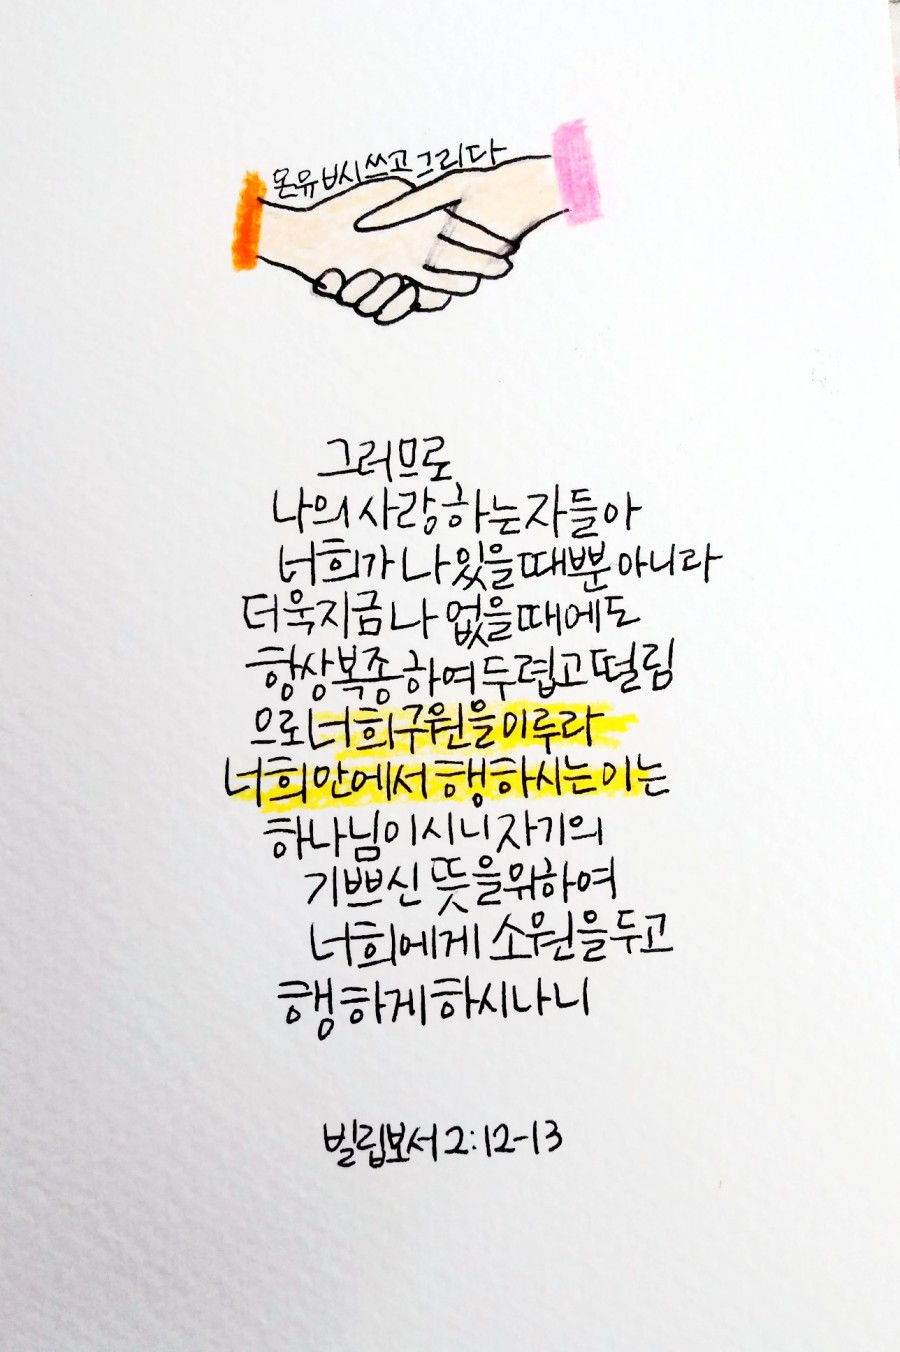 온유 씨 쓰고 그리다
그러므로
나의 사랑하는 자들아
너희가 나 있을 때뿐 아니라
더욱 지금 나 없을 때에도
항상 복종하여 두렵고 떨림
으로 너희 구원을 이루라
너희 안에서 행하시는 이는
하나님이시니 자기의
기쁘신 뜻을 위하여
너희에게 소원을 두고
행하게 하시나니
빌립보서 2:12-13